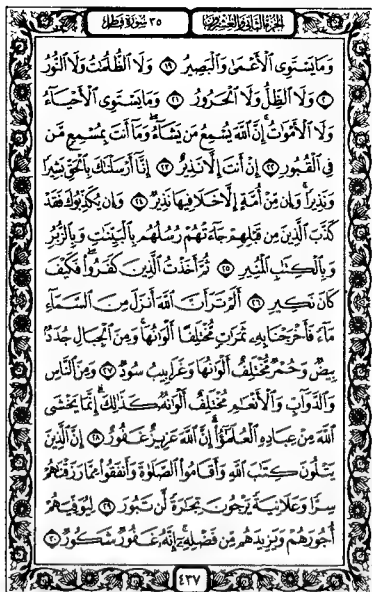 الجزء الثاني والعشرون ٣٥ سورة فاطر
وَمَا يَسْتَوِى ٱلْأَعْمَىٰ وَٱلْبَصِيرُ ١٩ وَلَا ٱلظُّلُمَٰتُ وَلَا ٱلنُّورُ
٢٠ وَلَا ٱلظِّلُّ وَلَا ٱلْحَرُورُ ٢١ وَمَا يَسْتَوِى ٱلْأَحْيَآءُ
وَلَا ٱلْأَمْوَٰتُ ۚ إِنَّ ٱللَّهَ يُسْمِعُ مَن يَشَآءُ ۖ وَمَآ أَنتَ بِمُسْمِعٍ مَّن
فِى ٱلْقُبُورِ ٢٢ إِنْ أَنتَ إِلَّا نَذِيرٌ ٢٣ إِنَّآ أَرْسَلْنَٰكَ بِٱلْحَقِّ بَشِيرًا
وَنَذِيرًا ۚ وَإِن مِّنْ أُمَّةٍ إِلَّا خَلَا فِيهَا نَذِيرٌ ٢٤ وَإِن يُكَذِّبُوكَ فَقَدْ
كَذَّبَ ٱلَّذِينَ مِن قَبْلِهِمْ جَآءَتْهُمْ رُسُلُهُم بِٱلْبَيِّنَٰتِ وَبِٱلزُّبُرِ
وَبِٱلْكِتَٰبِ ٱلْمُنِيرِ ٢٥ ثُمَّ أَخَذْتُ ٱلَّذِينَ كَفَرُوا۟ ۖ فَكَيْفَ
كَانَ نَكِيرِ ٢٦ أَلَمْ تَرَ أَنَّ ٱللَّهَ أَنزَلَ مِنَ ٱلسَّمَآءِ
مَآءً فَأَخْرَجْنَا بِهِۦ ثَمَرَٰتٍ مُّخْتَلِفًا أَلْوَٰنُهَا ۚ وَمِنَ ٱلْجِبَالِ جُدَدٌۢ
بِيضٌ وَحُمْرٌ مُّخْتَلِفٌ أَلْوَٰنُهَا وَغَرَابِيبُ سُودٌ ٢٧ وَمِنَ ٱلنَّاسِ
وَٱلدَّوَآبِّ وَٱلْأَنْعَٰمِ مُخْتَلِفٌ أَلْوَٰنُهُۥ كَذَٰلِكَ ۗ إِنَّمَا يَخْشَى
ٱللَّهَ مِنْ عِبَادِهِ ٱلْعُلَمَٰٓؤُا۟ ۗ إِنَّ ٱللَّهَ عَزِيزٌ غَفُورٌ ٢٨ إِنَّ ٱلَّذِينَ
يَتْلُونَ كِتَٰبَ ٱللَّهِ وَأَقَامُوا۟ ٱلصَّلَوٰةَ وَأَنفَقُوا۟ مِمَّا رَزَقْنَٰهُمْ
سِرًّا وَعَلَانِيَةً يَرْجُونَ تِجَٰرَةً لَّن تَبُورَ ٢٩ لِيُوَفِّيَهُمْ
أُجُورَهُمْ وَيَزِيدَهُم مِّن فَضْلِهِۦٓ ۚ إِنَّهُۥ غَفُورٌ شَكُورٌ ٣٠
٤٣٧